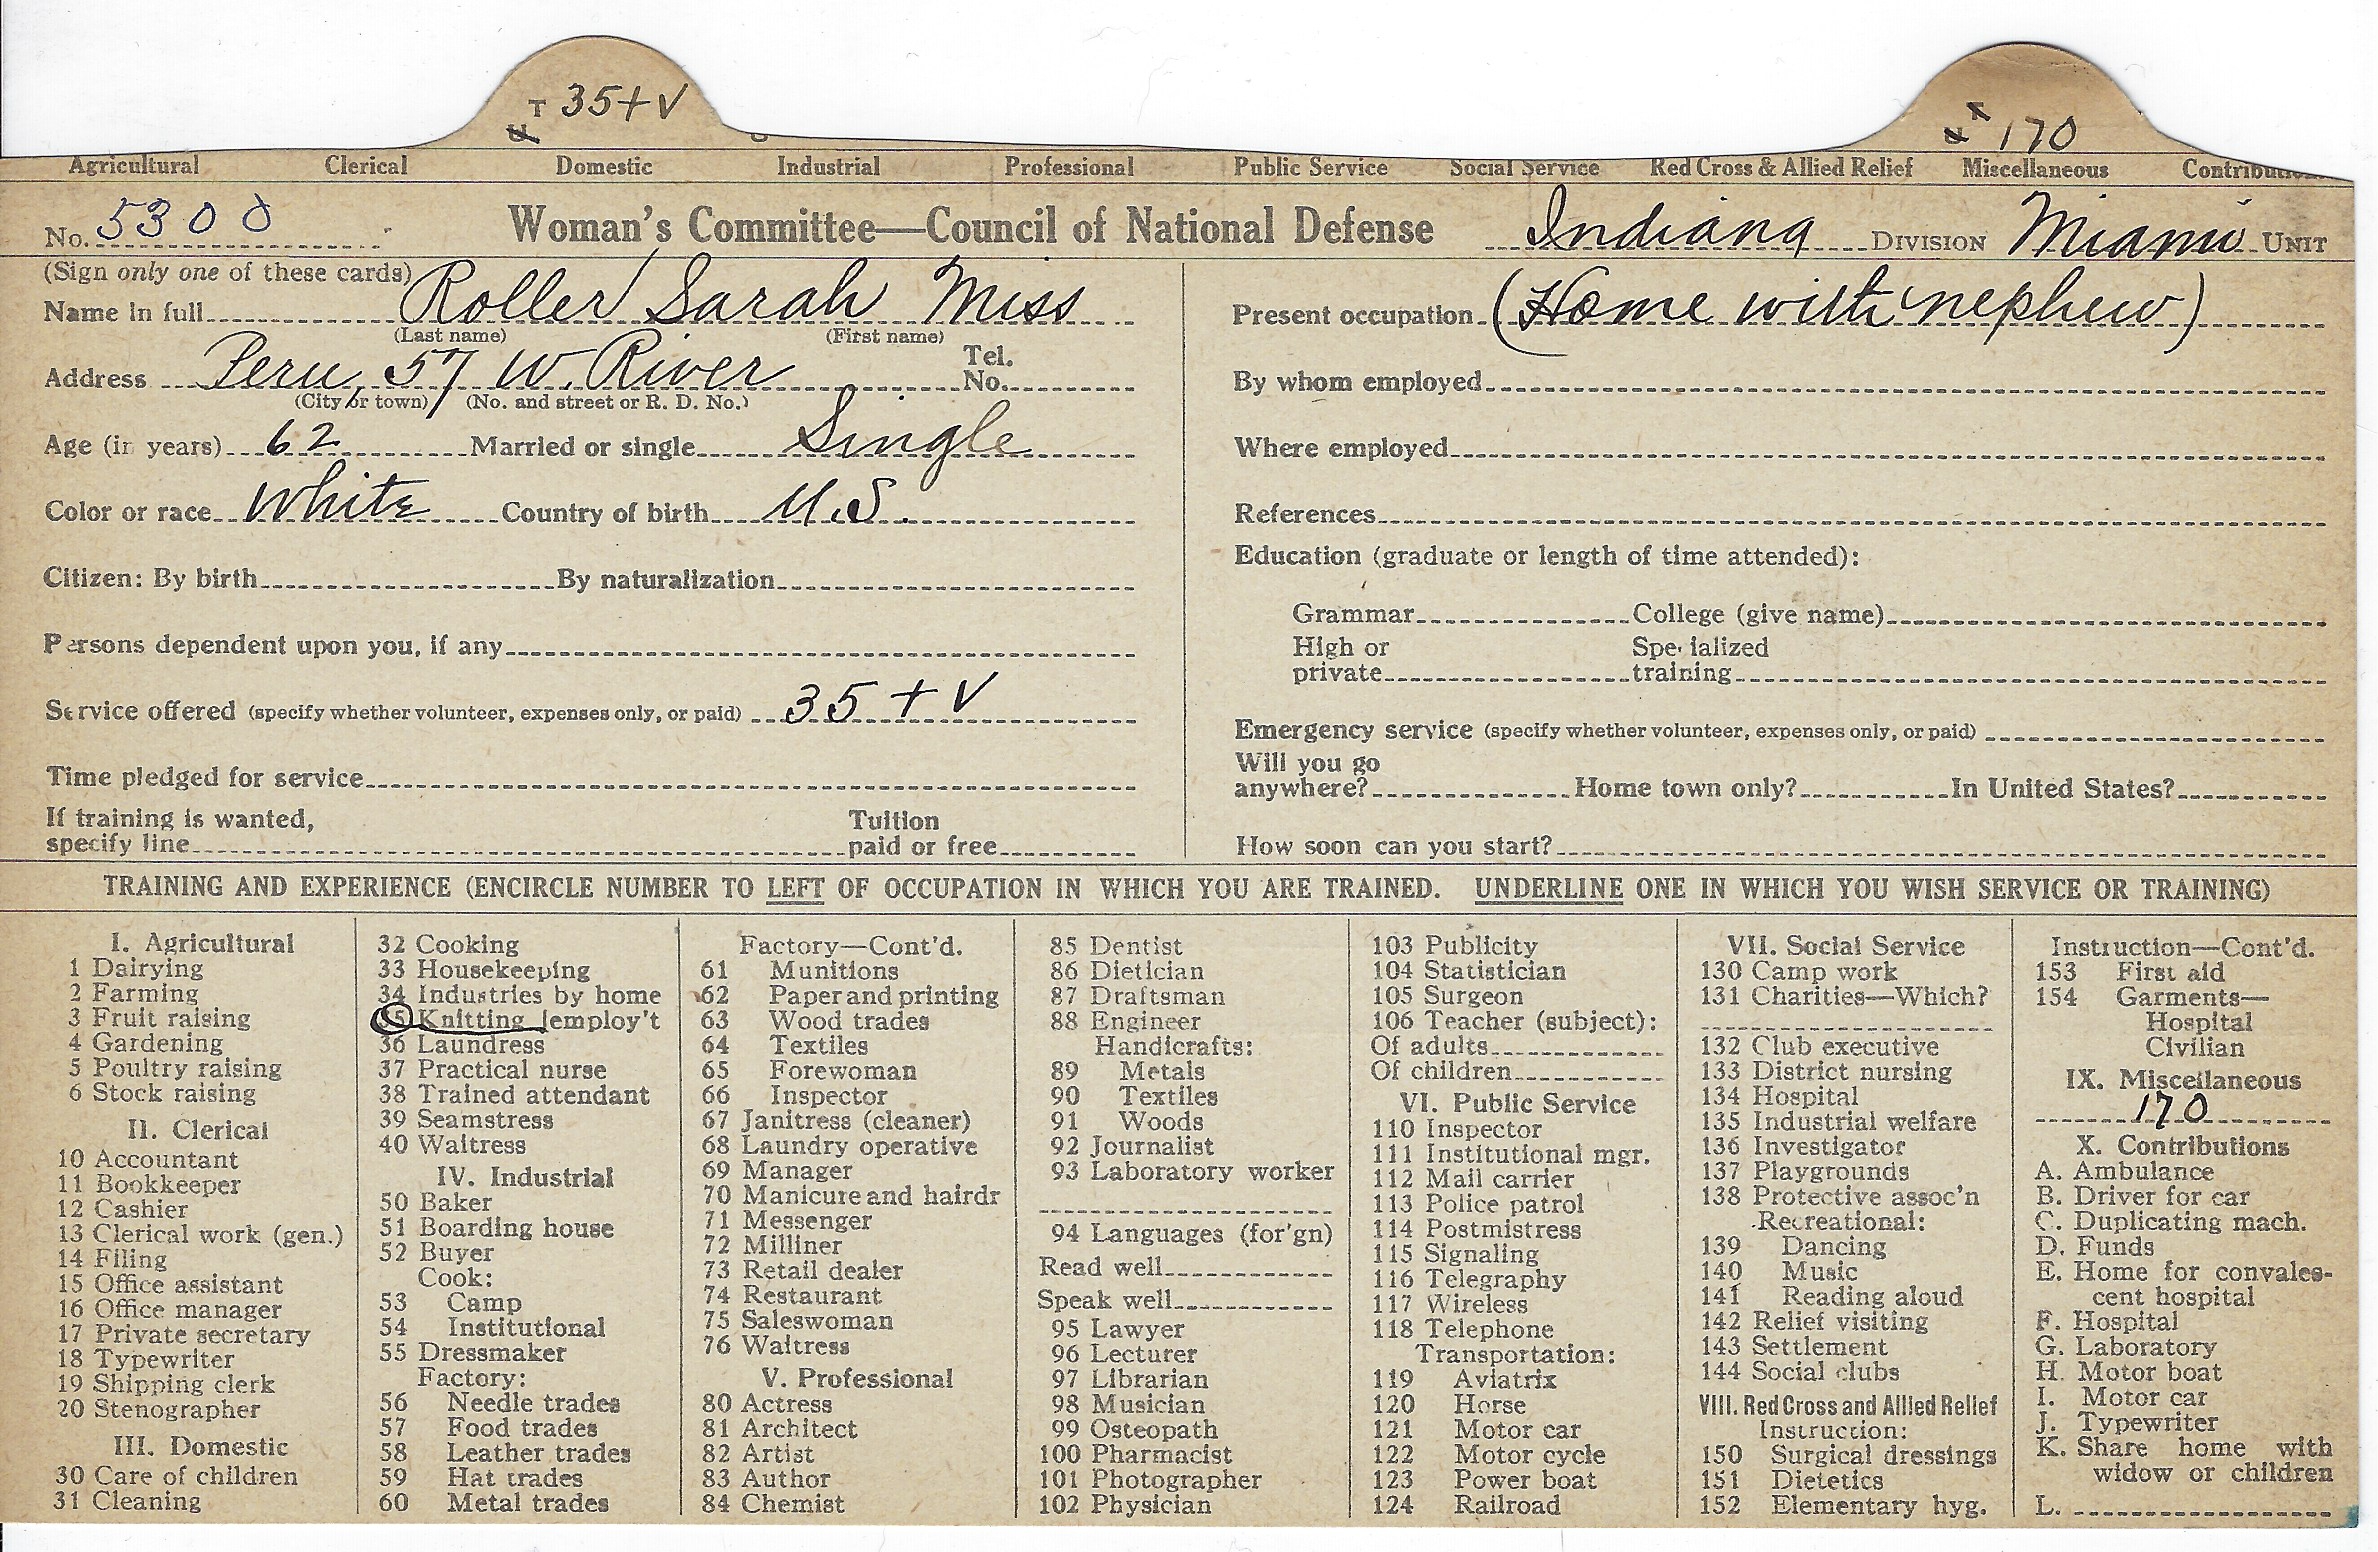 T 35+V
U
T 170
U
Agricultural Clerical Domestic Industrial Professional Public Service Social Service Red Cross & Allied Relief Miscellaneous
No. 5300 Woman's Committee—Council of National Defense Indiana DIVISION Miami UNIT
(Sign only one of these cards)
Name in full Roller Sarah Miss
(Last name) (First name)
Address Peru, 57 W. River Tel. No.
(City or town) (No. and street or R. D. No.)
Age (in years) 62 Married or single Single
Color or race White Country of birth U.S.
Citizen: By birth By naturalization
Persons dependent upon you, if any
Service offered (specify whether volunteer, expenses only, or paid) 35 + V
Time pledged for service
If training is wanted,
specify line
Tuition
paid or free
Present occupation (Home with nephew)
By whom employed
Where employed
References
Education (graduate or length of time attended):
Grammar College (give name)
High or
private
Specialized
training
Emergency service (specify whether volunteer, expenses only, or paid)
Will you go
anywhere? Home town only? In United States?
How soon can you start?
TRAINING AND EXPERIENCE (ENCIRCLE NUMBER TO LEFT OF OCCUPATION IN WHICH YOU ARE TRAINED. UNDERLINE ONE IN WHICH YOU WISH SERVICE OR TRAINING)
I. Agricultural
1 Dairying
2 Farming
3 Fruit raising
4 Gardening
5 Poultry raising
6 Stock raising
II. Clerical
10 Accountant
11 Bookkeeper
12 Cashier
13 Clerical work (gen.)
14 Filing
15 Office assistant
16 Office manager
17 Private secretary
18 Typewriter
19 Shipping clerk
20 Stenographer
III. Domestic
30 Care of children
31 Cleaning
32 Cooking
33 Housekeeping
34 Industries by home
35 Knitting [employ't
36 Laundress
37 Practical nurse
38 Trained attendant
39 Seamstress
40 Waitress
IV. Industrial
50 Baker
51 Boarding house
52 Buyer
Cook:
53 Camp
54 Institutional
55 Dressmaker
Factory:
56 Needle trades
57 Food trades
58 Leather trades
59 Hat trades
60 Metal trades
Factory—Cont'd.
61 Munitions
62 Paper and printing
63 Wood trades
64 Textiles
65 Forewoman
66 Inspector
67 Janitress (cleaner)
68 Laundry operative
69 Manager
70 Manicure and hairdr
71 Messenger
72 Milliner
73 Retail dealer
74 Restaurant
75 Saleswoman
76 Waitress
V. Professional
80 Actress
81 Architect
82 Artist
83 Author
84 Chemist
85 Dentist
86 Dietician
87 Draftsman
88 Engineer
Handicrafts:
89 Metals
90 Textiles
91 Woods
92 Journalist
93 Laboratory worker
94 Languages (for'gn)
Read well
Speak well
95 Lawyer
96 Lecturer
97 Librarian
98 Musician
99 Osteopath
100 Pharmacist
101 Photographer
102 Physician
103 Publicity
104 Statistician
105 Surgeon
106 Teacher (subject):
Of adults
Of children
VI. Public Service
110 Inspector
111 Institutional mgr.
112 Mail carrier
113 Police patrol
114 Postmistress
115 Signaling
116 Telegraphy
117 Wireless
118 Telephone
Transportation:
119 Aviatrix
120 Horse
121 Motor car
122 Motor cycle
123 Power boat
124 Railroad
VII. Social Service
130 Camp work
131 Charities—Which?
132 Club executive
133 District nursing
134 Hospital
135 Industrial welfare
136 Investigator
137 Playgrounds
138 Protective assoc'n
Recreational:
139 Dancing
140 Music
141 Reading aloud
142 Relief visiting
143 Settlement
144 Social clubs
VIII. Red Cross and Allied Relief
Instruction:
150 Surgical dressings
151 Dietetics
152 Elementary hyg.
Instruction—Cont'd.
153 First aid
154 Garments—
Hospital
Civilian
IX. Miscellaneous
170
X. Contributions
A. Ambulance
B. Driver for car
C. Duplicating mach.
D. Funds
E. Home for convales-
cent hospital
F. Hospital
G. Laboratory
H. Motor boat
I. Motor car
J. Typewriter
K. Share home with
widow or children
L.